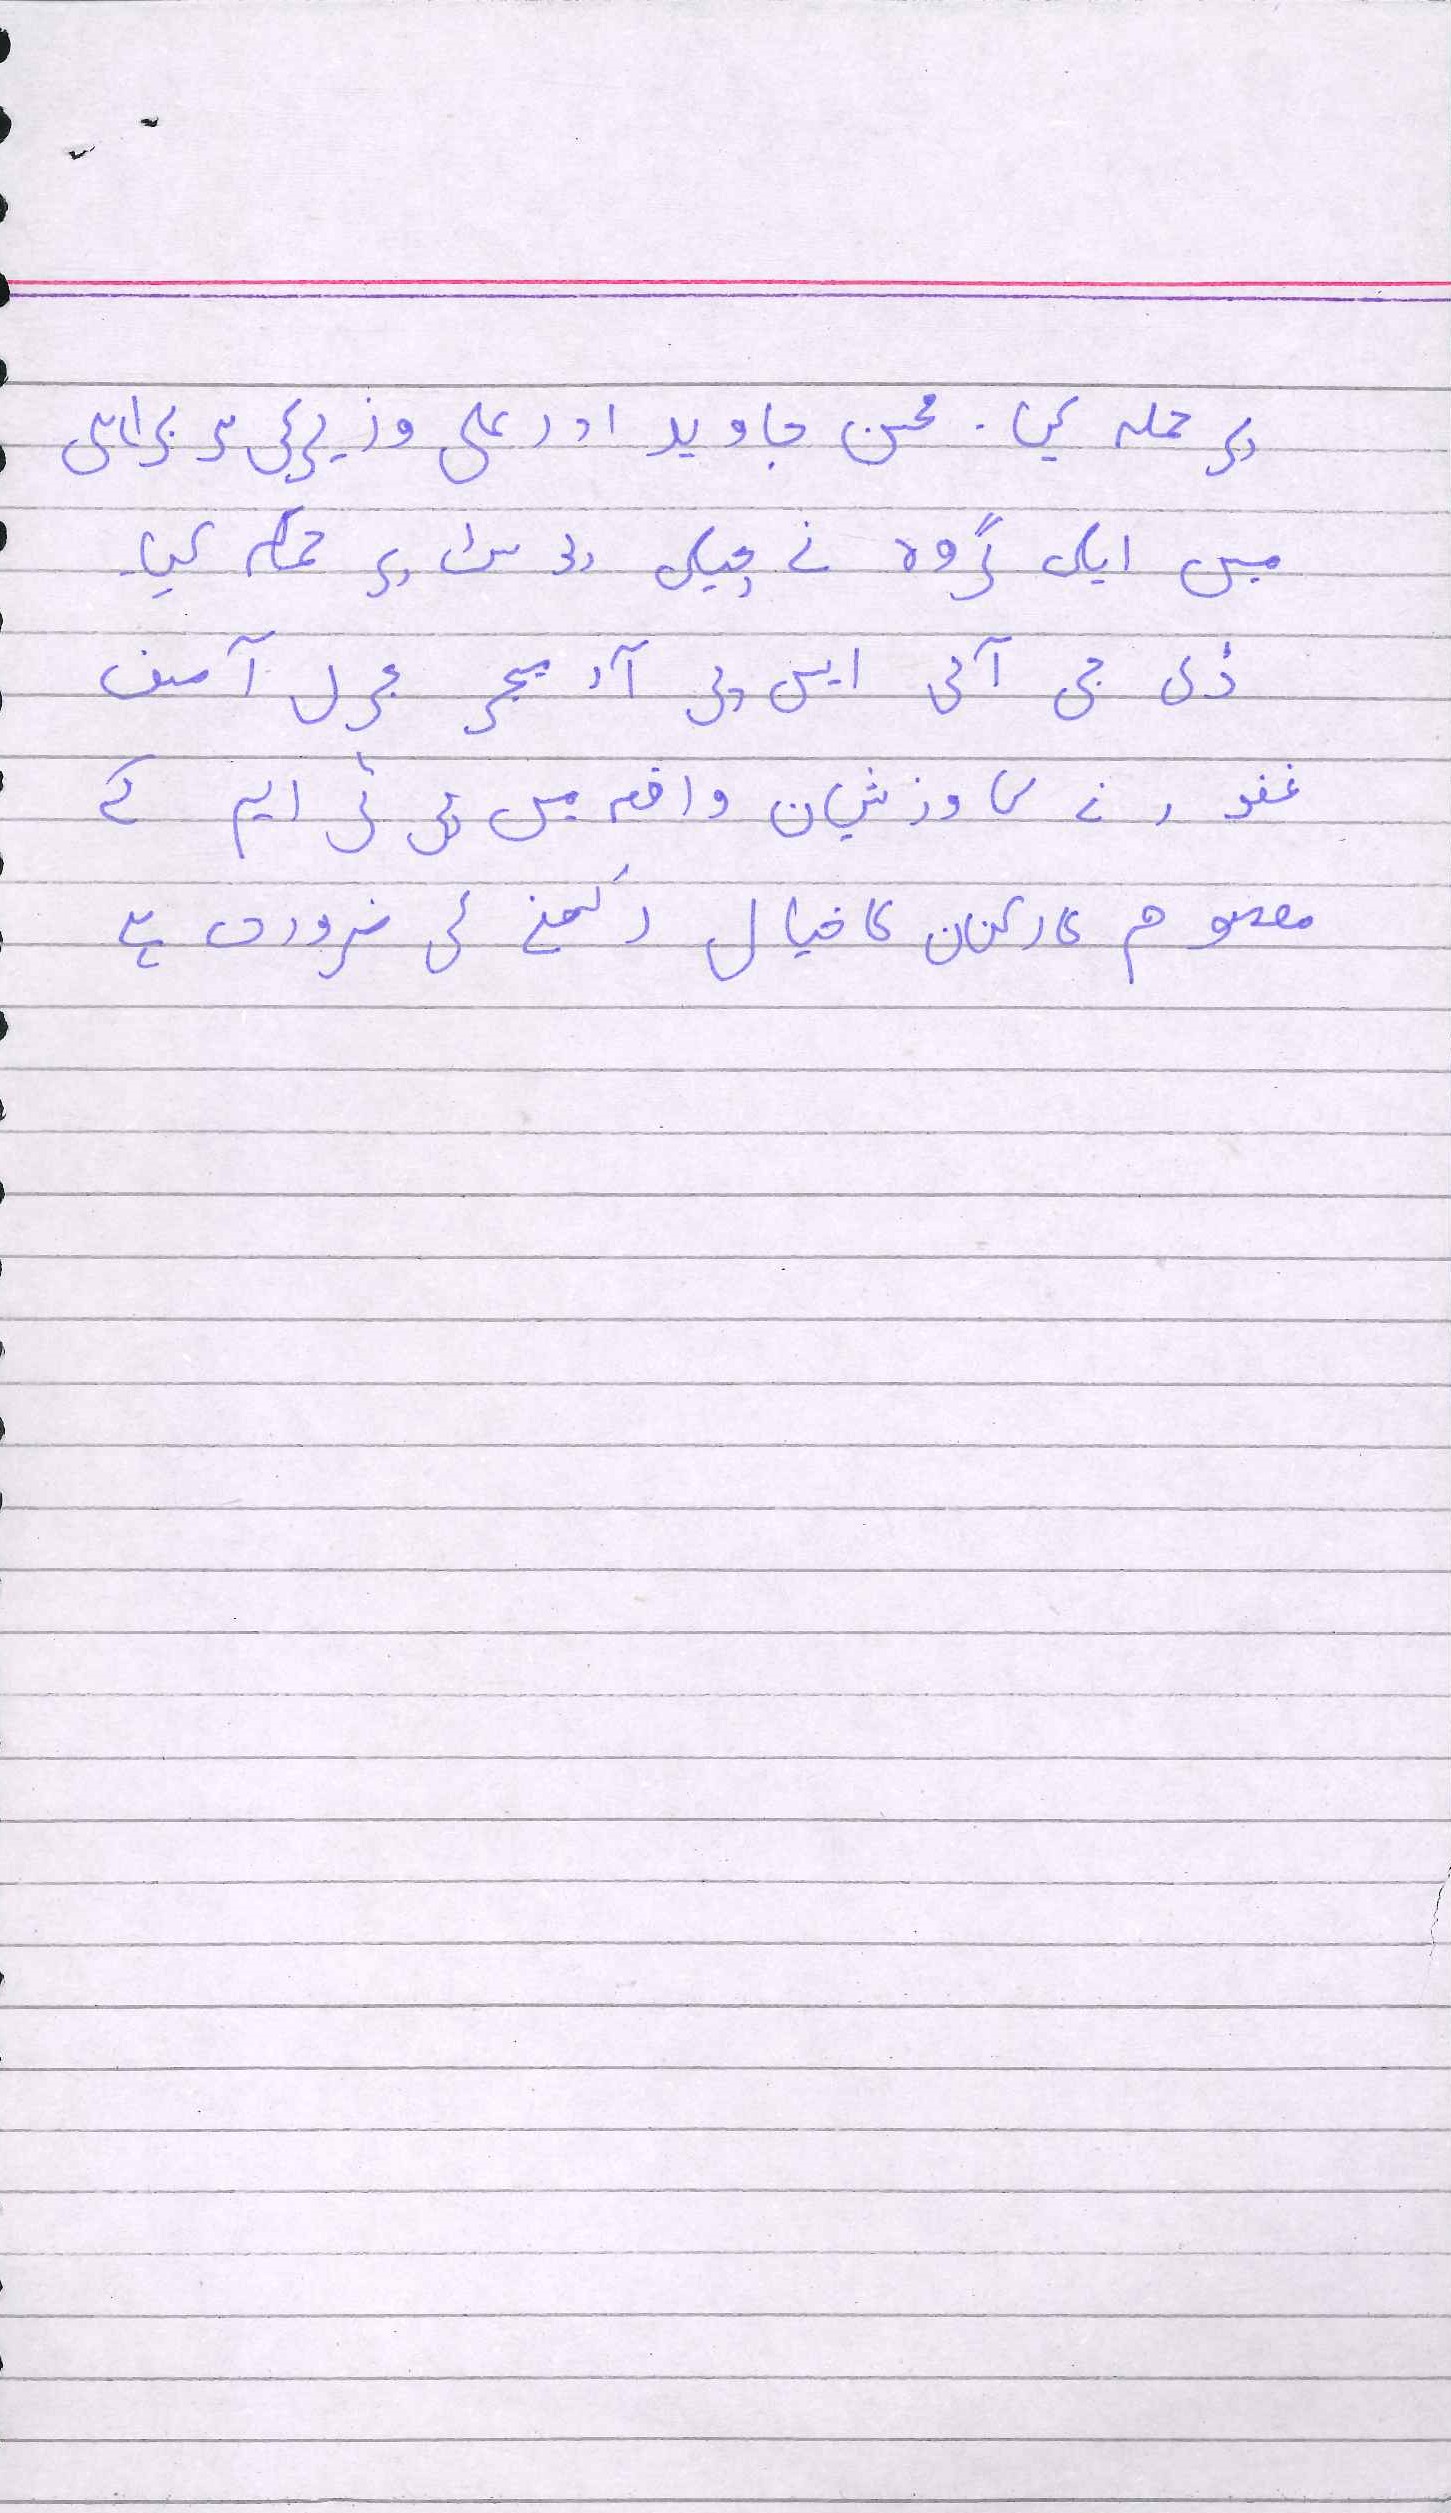 پر حملہ کیا. محسن جاوید اور علی وزیر کی سربراہی
میں ایک گروہ نے چیک پوسٹ پر حملہ کیا۔
ڈی جی آئی ایس پی آر میجر جنرل آصف
غفور نے کہا وزیرستان واقعہ میں پی ٹی ایم کے
معصوم کارکنان کا خیال رکھنے کی ضرورت ہے